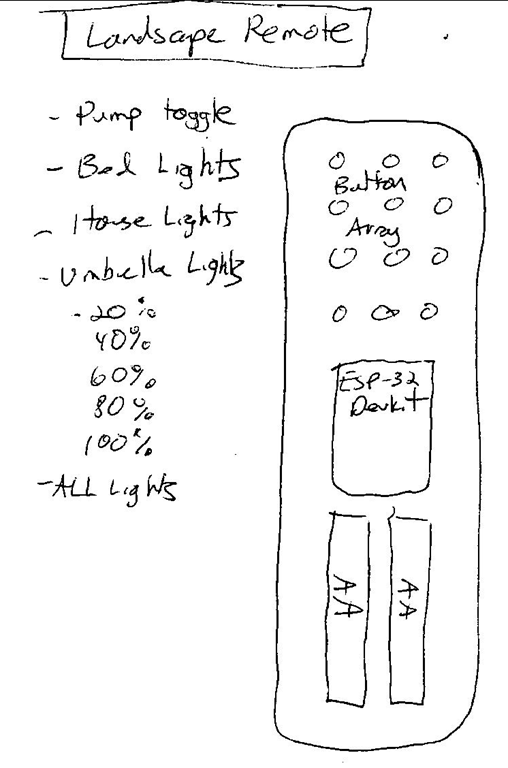 Landscape Remote
- Pump toggle
- Bed Lights
- House Lights
- Umbrella Lights
- 20%
40%
60%
80%
100%
- ALL Lights
Button
Array
ESP-32
Devkit
AA
AA